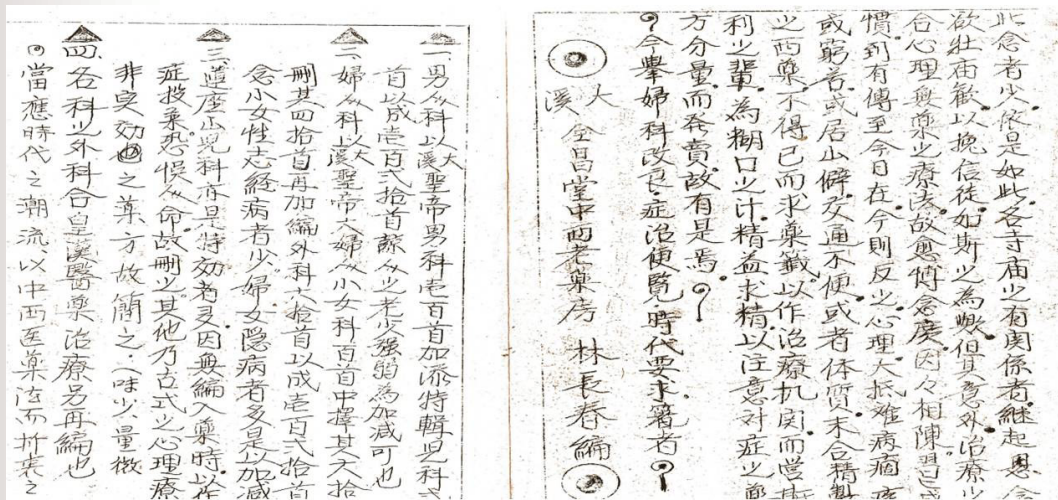 此念者少依是如此各寺庙之有関係者継起恩
欲壮庙歓以挽信徒如斯少為嶥但其意外治療
合心理無薬之療法故愈博念度因々相陳習
慣到有傳至今日在今則反之心理大抵难病痼疾
或窮苦或居山僻及通不便或者体質未合精製
之西藥不得已而求藥籤以作治療机関而営
利之輩為糊口之計精益求精以注意对症之藥
方分量而発賣故有是焉
今舉婦科改良症治便覧時代要求著者
大溪全昌堂中西老藥房 林長春編
一、男人科以大溪聖帝男科壱百首加添特輯児科弍
首以成壱百弍拾首蘇人少老少强弱為加减可也
二、婦人科以大溪聖帝大婦人小女科百首中擇其六拾
删其四拾首再加編外科六拾首以成壱百弍拾首
念小女性志経病者少婦女隠病者多是以加减
三、遵度正児科亦是特効者灵因無編入藥時以作
症投薬恐悞人命故删之其他乃古式之心理療
非实効之薬方故簡之(味少量微
四、各科之外科合皇漢醫藥治療另再編也
當應時代之潮流以中西医薬法而折衷之